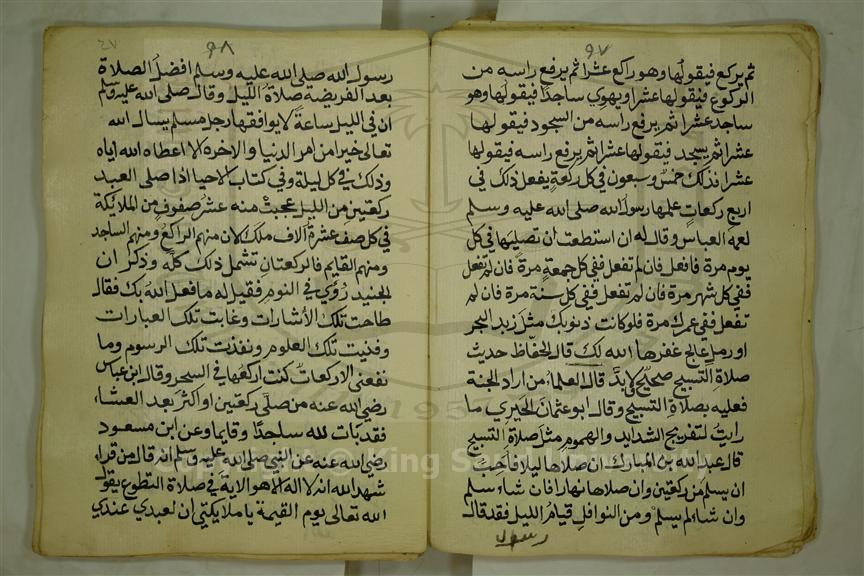 ٩٧
ثم يركع فيقولها وهو راكع عشرا ثم يرفع راسه من
الركوع فيقولها عشرا ويهوي ساجدا فيقولها وهو
ساجد عشرا ثم يرفع راسه من السجود فيقولها
عشرا ثم يسجد فيقولها عشرا ثم يرفع راسه فيقولها
عشرا فذلك خمس وسبعون في كل ركعة يفعل ذلك في
اربع ركعات علمها رسول الله صلى الله عليه وسلم
لعمه العباس وقال له ان استطعت ان تصليها في كل
يوم مرة فافعل فان لم تفعل ففي كل جمعة مرة فان لم تفعل
ففي كل شهر مرة فان لم تفعل ففي كل سنة مرة فان لم
تفعل ففي عمرك مرة فلو كانت ذنوبك مثل زبد البحر
او رمل عالج غفرها الله لك قال الحفاظ حديث
صلاة التسبيح صحيح قال العلماء من اراد الجنة
فعليه بصلاة التسبيح وقال ابو عثمان الحيري ما
رايت لتفريج الشدايد والهموم مثل صلاة التسبيح
قال عبد الله بن المبارك ان صلاها ليلا فاحب
ان يسلم من ركعتين وان صلاها نهارا فان شاء سلم
وان شاء لم يسلم ومن النوافل قيام الليل فقد قال
رسول
٩٨
رسول الله صلى الله عليه وسلم افضل الصلاة
بعد الفريضه صلاة الليل وقال صلى الله عليه وسلم
ان في الليل ساعة لا يوافقها رجل مسلم يسال الله
تعالى خيرا من امر الدنيا والاخرة الا اعطاه الله اياه
وذلك في كل ليلة وفي كتاب الاحيا اذا صلى العبد
ركعتين من الليل عجبت منه عشر صفوف من الملايكة
في كل صف عشرة الاف ملك لان منهم الراكع ومنهم الساجد
ومنهم القايم فالركعتان تشمل ذلك كله وذكر ان
الجنيد رؤي في النوم فقيل له ما فعل الله بك فقال
طاحت تلك الاشارات وغابت تلك العبارات
وفنيت تلك العلوم ونفذت تلك الرسوم وما
نفعني الا ركعات كنت اركعها في السحر وقال ابن عباس
رضي الله عنه من صلى ركعتين او اكثر بعد العشاء
فقد بات لله ساجدا وقايما وعن ابن مسعود
رضي الله عنه عن النبي صلى الله عليه وسلم انه قال من قرا
شهد الله انه لا اله الا هو الاية في صلاة التطوع يقول
الله تعالى يوم القيمة يا ملايكتي ان لعبدي عندي
Copyright © King Saud University
1957